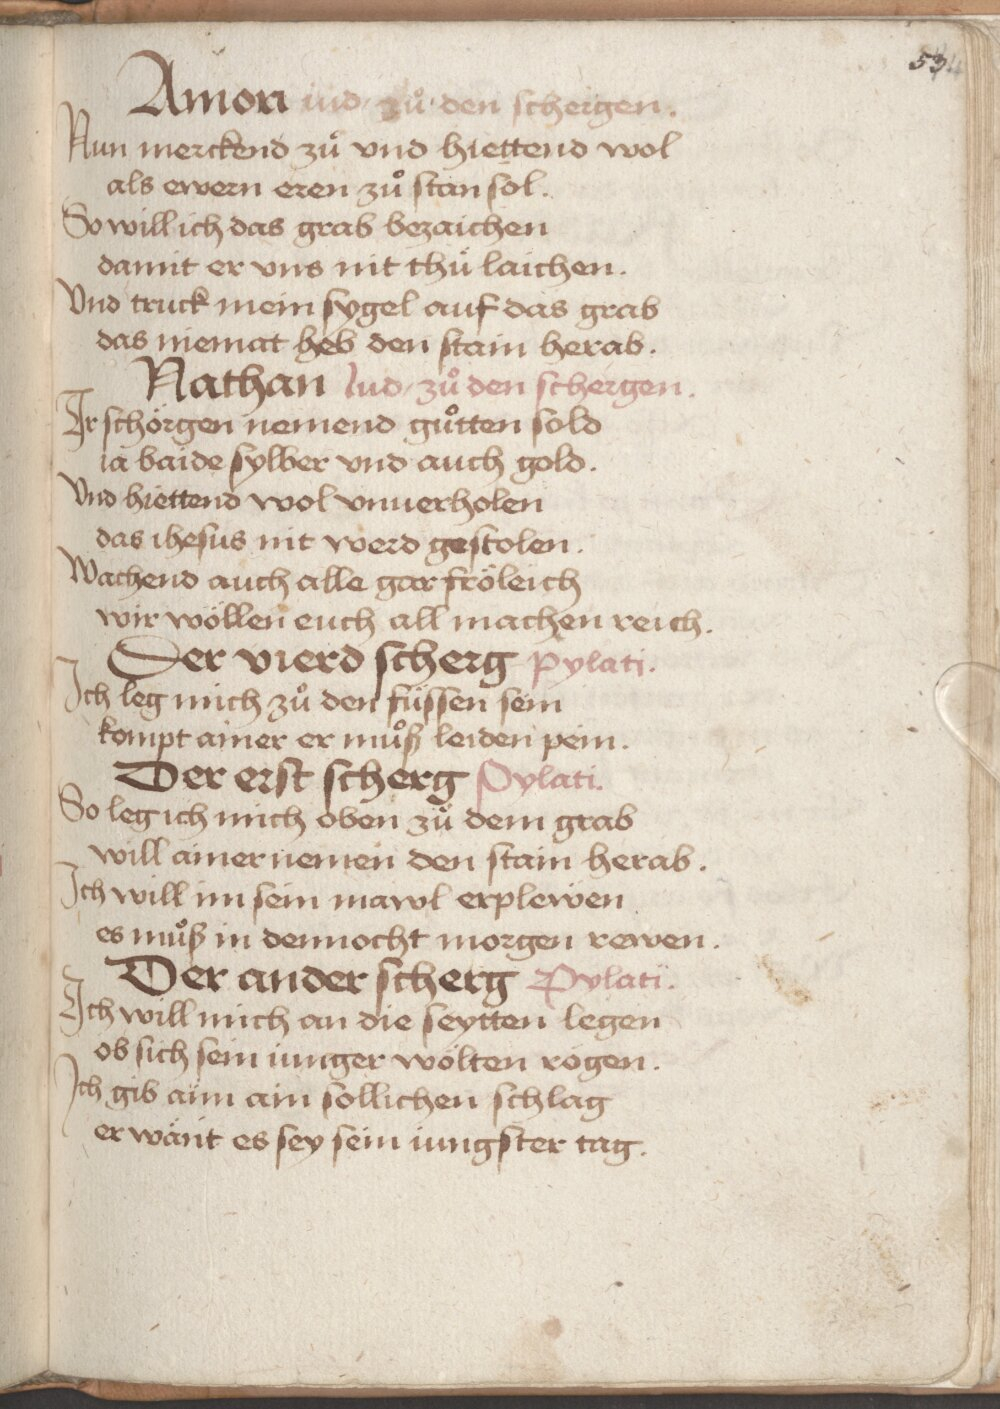 53
Amon iud zů den schergen.
Nun merckend zů vnd hiettend wol
als ewern eren zů stan sol.
So will ich das grab bezaichen
damit er vns nit thü laichen.
Vnd truck mein sygel auf das grab
das niemat heb den stain herab.
Nathan Iud zů den schergen.
Ir schörgen nemend gůtten sold
ia baide sylber vnd auch gold.
Vnd hiettend wol vnuerholen
das ihesus nit werd gestolen.
Wachend auch alle gar fröleich
wir wöllen euch all machen reich.
Der vierd scherg Pylati.
Ich leg mich zů den füssen sein
kompt ainer er můß leiden pein.
Der erst scherg Pylati.
So leg ich mich oben zů dem grab
will ainer nemen den stain herab.
Ich will im sein mawl erplewen
es můß in dennocht morgen rewen.
Der ander scherg Pylati.
Ich will mich an die seytten legen
ob sich sein iunger wölten rögen.
Ich gib aim ain sollichen schlag
er wänt es sey sein iungster tag.